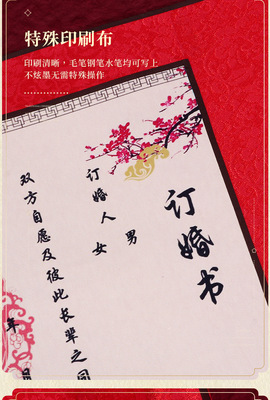 特殊印刷布
印刷清晰，毛笔钢笔水笔均可写上
不炫墨无需特殊操作
订婚书
男
订婚人 女
双方自愿及彼此长辈之同
年